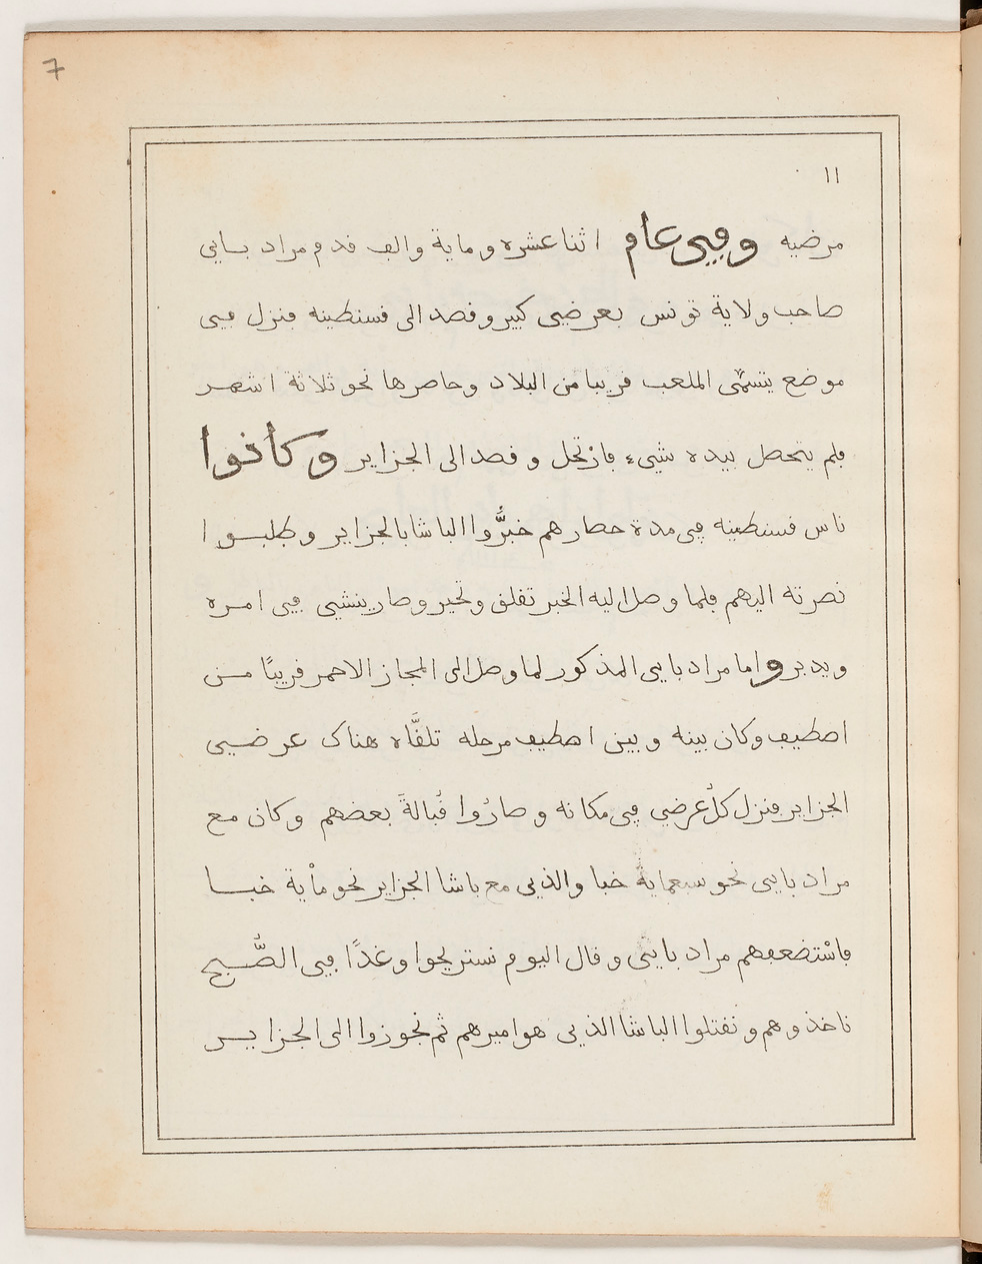 7
١١
مرضيه وفي عام اثنا عشره وماية والف قدم مراد بايي
صاحب ولاية تونس بعرضي كبير وقصد الى قسنطينه فنزل في
موضع يتسمّى الملعب قريبا من البلاد وحاصرها نحو ثلاثة اشهر
فلم يتحصل بيده شيء فارْتحل وقصد الى الجزاير وكانوا
ناس قسنطينه في مدة حصارهم خبرُّوا الباشا بالجزاير وطلبوا
نصرته اليهم فلما وصل اليه الخبر تقلق وتحير وصار ينشي في امره
ويدبر واما مراد بايي المذكور لما وصل الى المجاز الاحمر قريبًا من
اصطيف وكان بينه وبين اصطيف مرحله تلقَّاه هناك عرضي
الجزاير فنزل كلْ عرضي في مكانه وصارُوا قُبالةَ بعضهم وكان مع
مراد بايي نحو سبعماية خبا والذي مع باشا الجزاير نحو مأْية خبا
فاسْتضعفهم مراد بايي وقال اليوم نستريحوا وغدًا في الصُّبح
ناخذوهم ونقتلوا الباشا الذي هو اميرهم ثم نجوزوا الى الجزاير